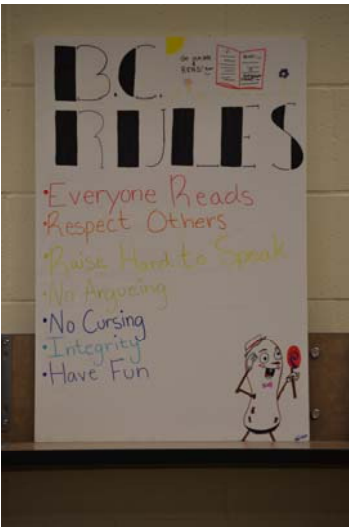 B.C.
RULES
•Everyone Reads
•Respect Others
•Raise Hand to Speak
•No Argueing
•No Cursing
•Integrity
•Have Fun